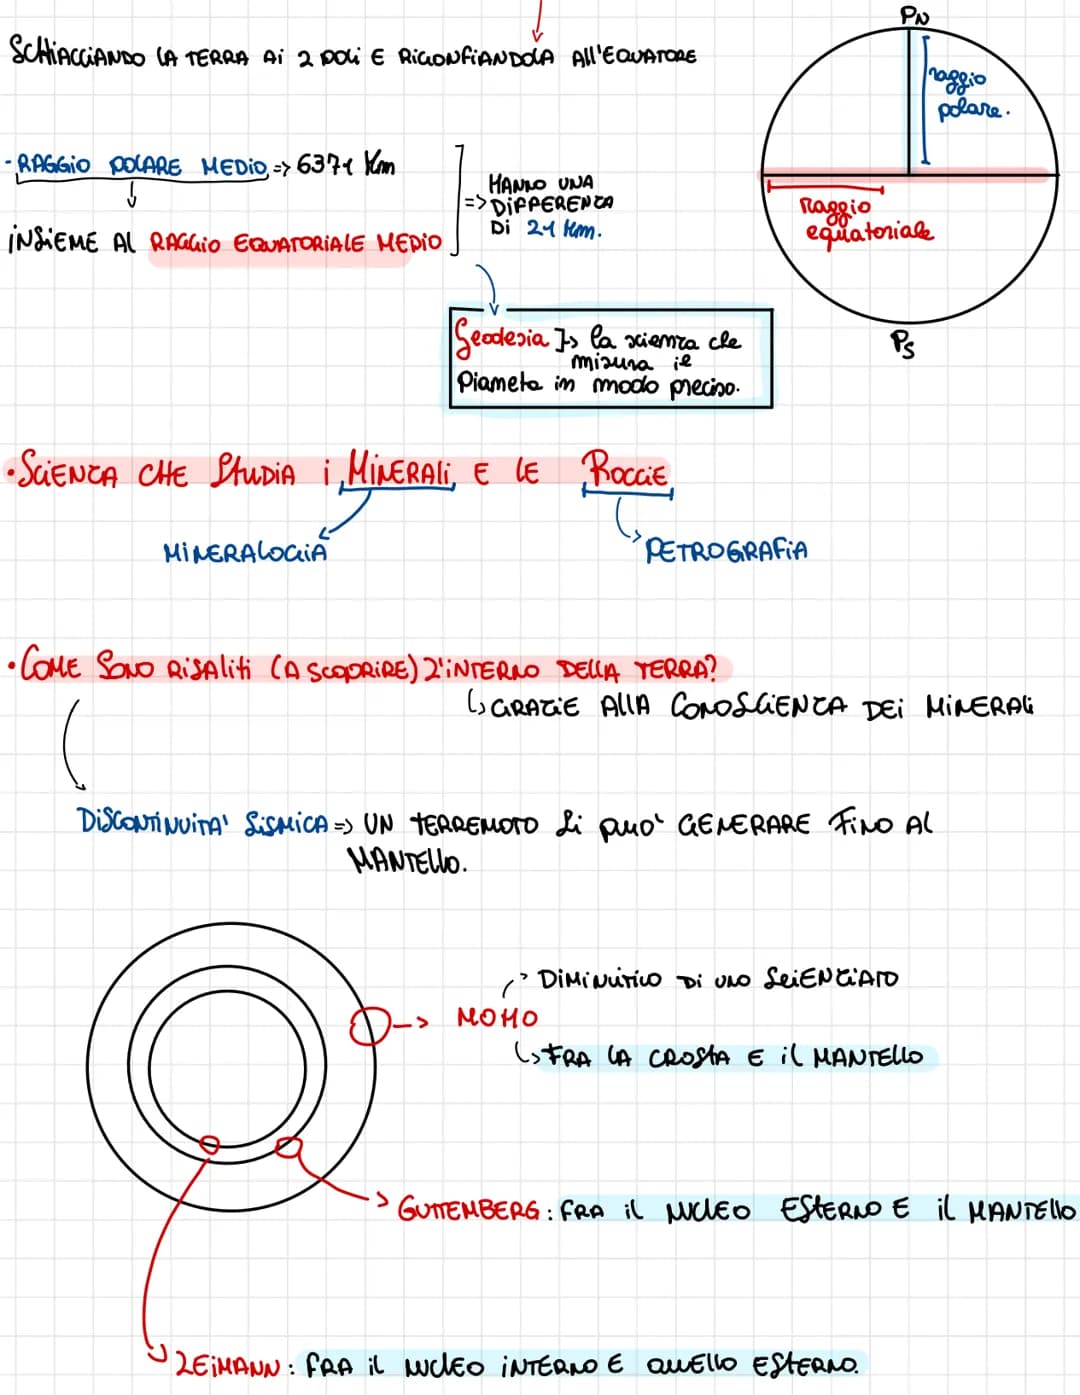 SCHIACCIANDO LA TERRA AI 2 POLI E RIGONFIANDOLA ALL'EQUATORE
PN
raggio
polare.
- RAGGIO POLARE MEDIO => 6371 Km
HANNO UNA
=> DIFFERENZA
DI 21 Km.
INSIEME AL RAGGIO EQUATORIALE MEDIO
Raggio
equatoriale
PS
Geodesia la scienza che
misura il
Pianeta in modo preciso.
• SCIENZA CHE STUDIA I MINERALI E LE ROCCIE
MINERALOGIA
PETROGRAFIA
• COME SONO RISALITI (A SCOPRIRE) L'INTERNO DELLA TERRA?
GRAZIE ALLA CONOSCIENZA DEI MINERALI
DISCONTINUITA' SISMICA => UN TERREMOTO SI PUO' GENERARE FINO AL
MANTELLO.
DIMINUTICO DI UNO SCIENZIATO
--> MOHO
FRA LA CROSTA E IL MANTELLO
GUTTEMBERG: FRA IL NUCLEO ESTERNO E IL MANTELLO
LEIMANN: FRA IL NUCLEO INTERNO E QUELLO ESTERNO.